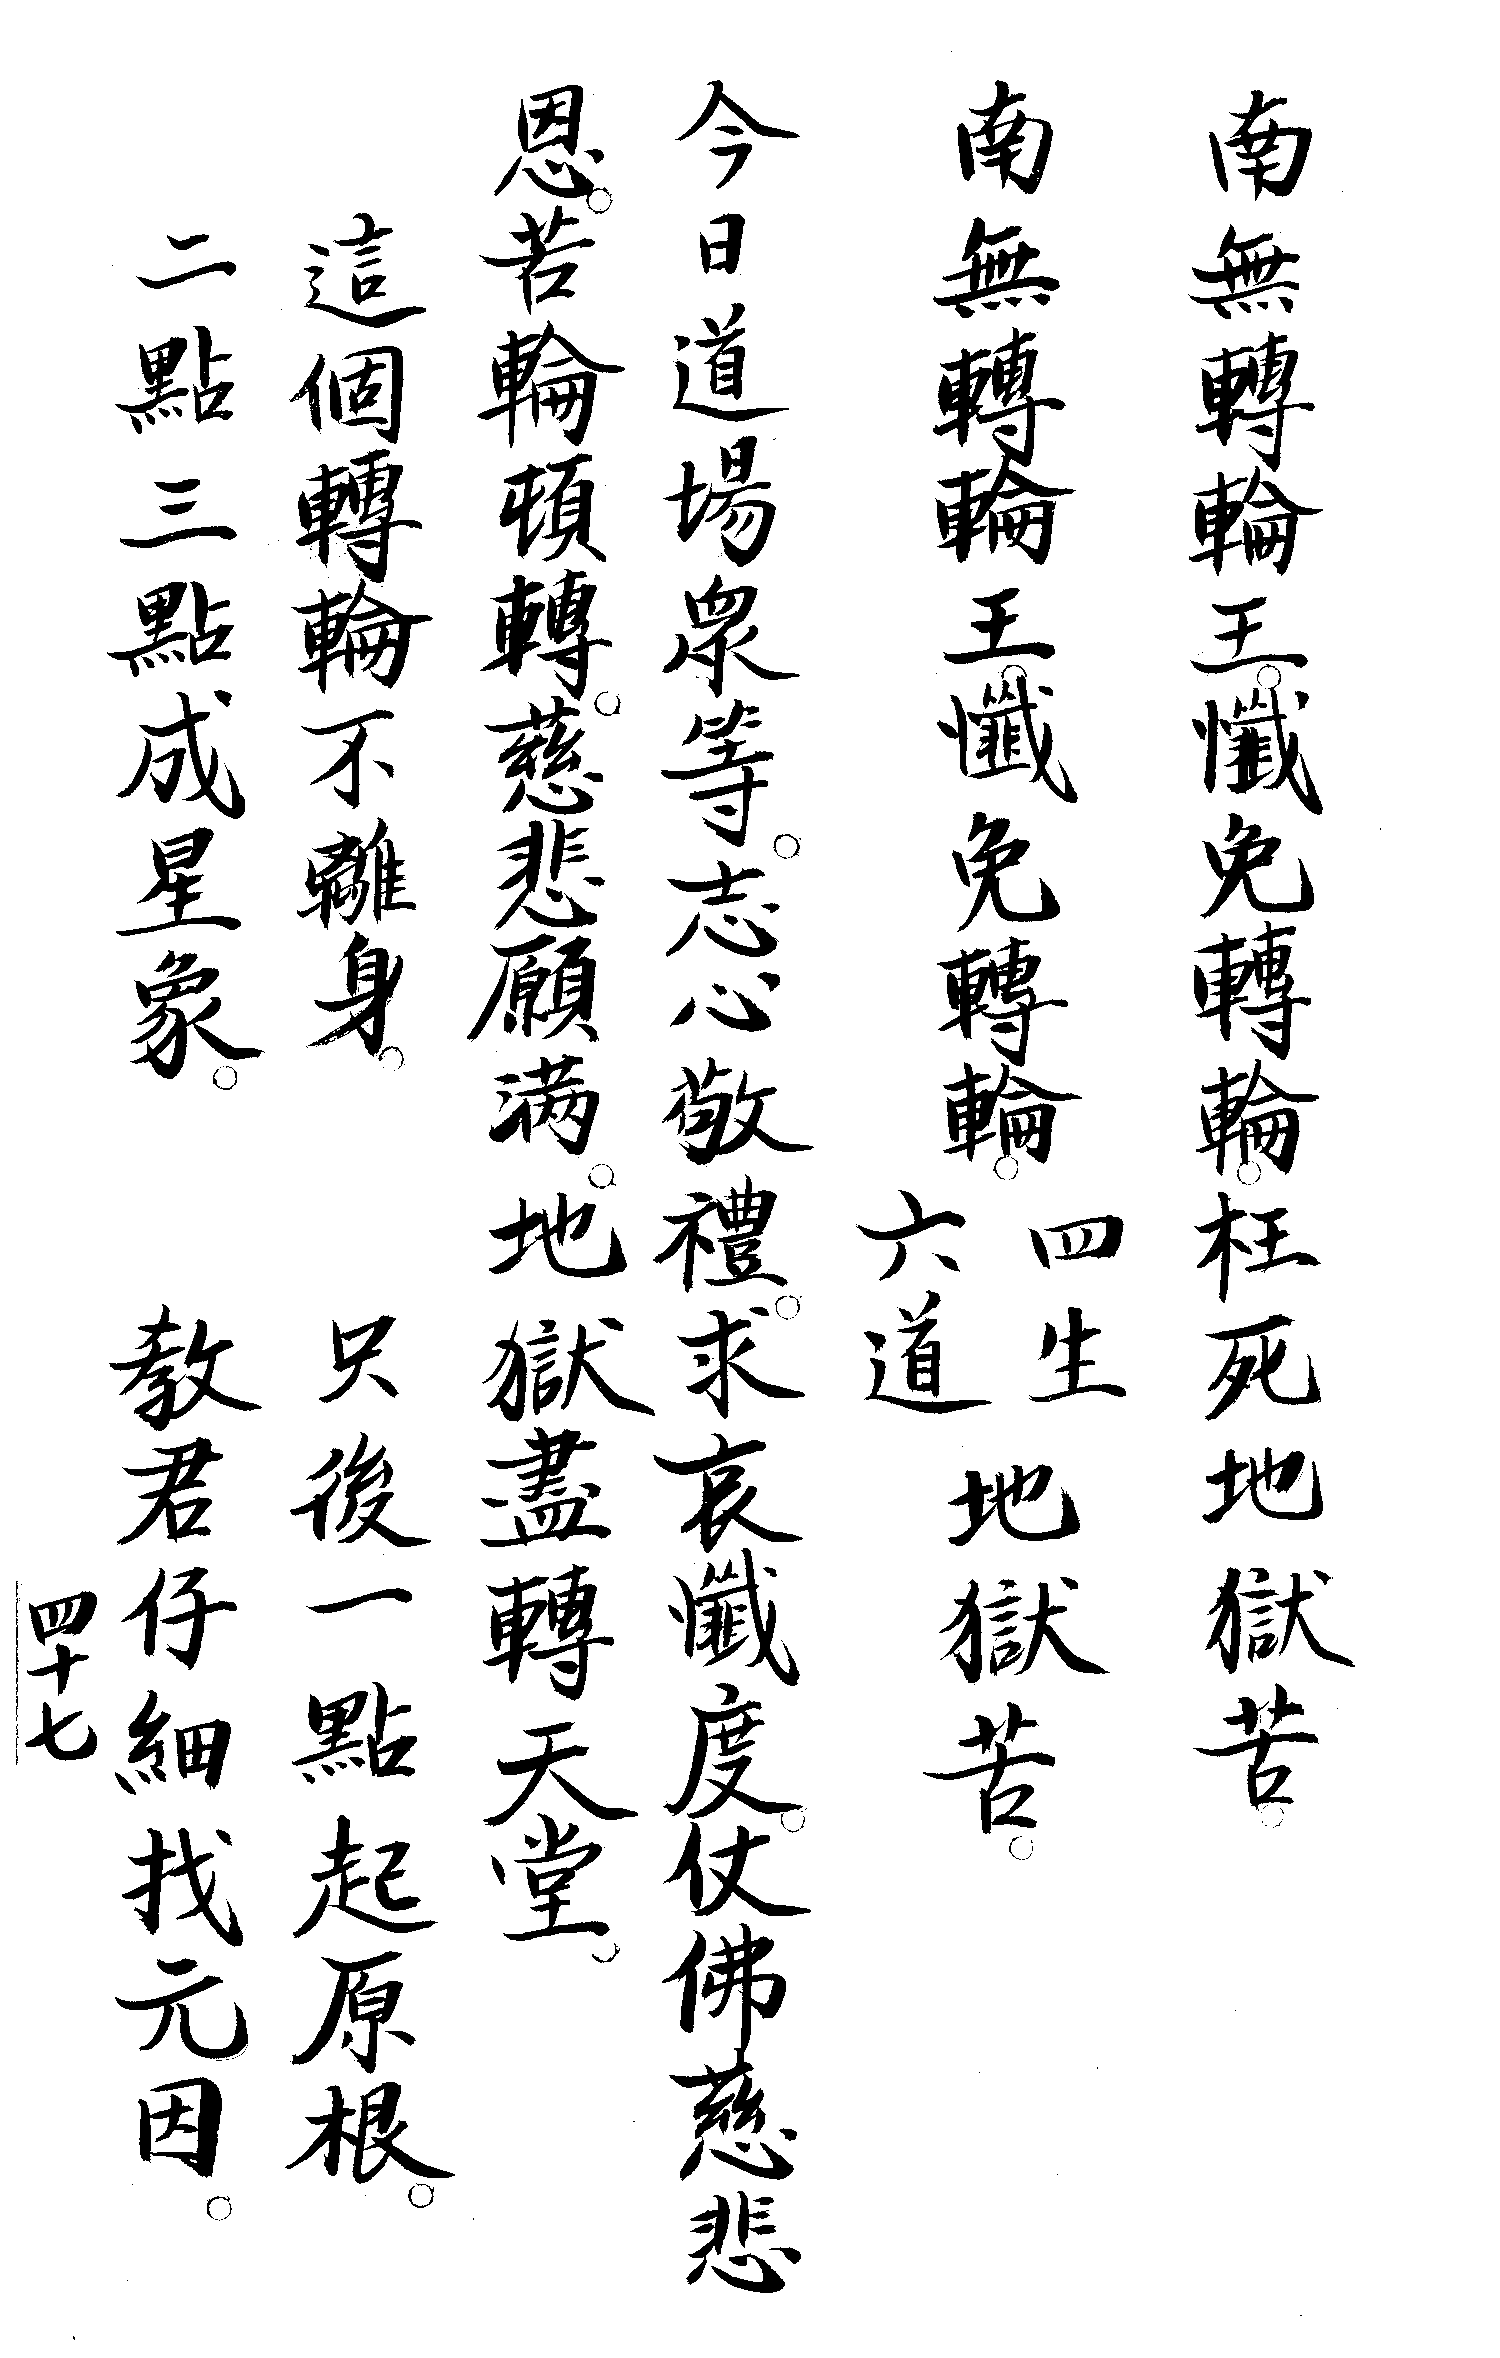 南無轉輪王。懺免轉輪。枉死地獄苦。
南無轉輪王。懺免轉輪。四生六道地獄苦。
今日道場眾等。志心敬禮。求哀懺度。仗佛慈悲
恩。苦輪頓轉。慈悲願滿。地獄盡轉天堂。
這個轉輪不離身。 只後一點起原根。
二點三點成星象。 教君仔細找元因。
四十七